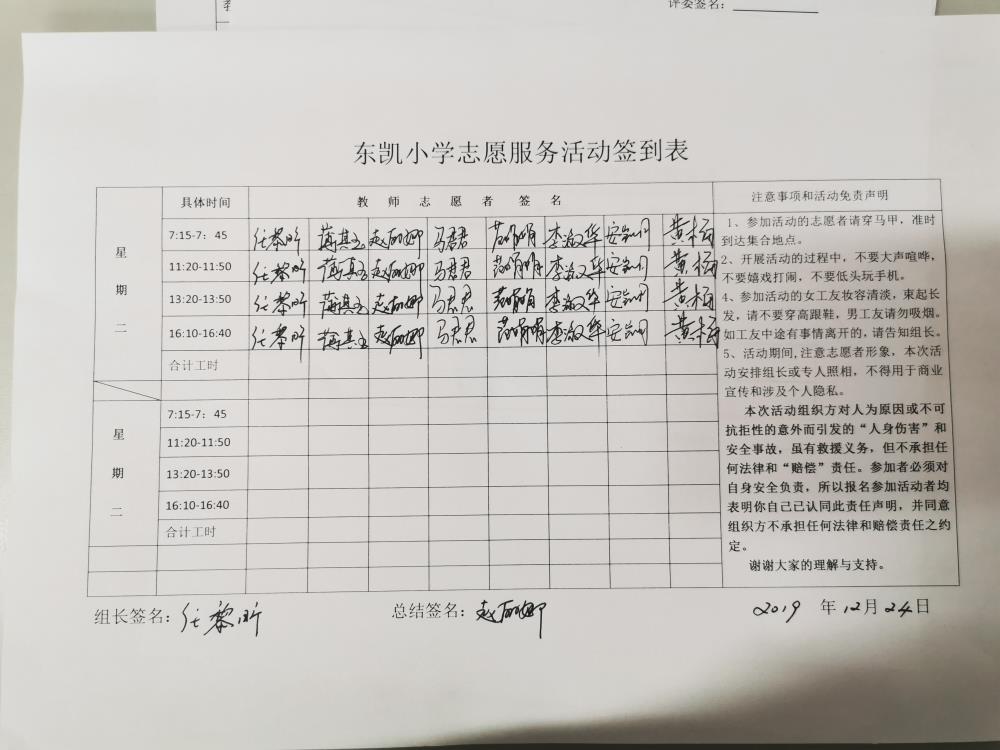 评委签名：
东凯小学志愿服务活动签到表
具体时间 教 师 志 愿 者 签 名 注意事项和活动免责声明
星期二
7:15-7：45 任黎昕 蒋其玉 赵丽娜 马君君 范娟娟 李淑华 黄杨
11:20-11:50 任黎昕 蒋其玉 赵丽娜 马君君 范娟娟 李淑华 黄杨
13:20-13:50 任黎昕 蒋其玉 赵丽娜 马君君 范娟娟 李淑华 黄杨
16:10-16:40 任黎昕 蒋其玉 赵丽娜 马君君 范娟娟 李淑华 黄杨
合计工时
星期二
7:15-7：45
11:20-11:50
13:20-13:50
16:10-16:40
合计工时
1、参加活动的志愿者请穿马甲，准时
到达集合地点。
2、开展活动的过程中，不要大声喧哗，
不要嬉戏打闹，不要低头玩手机。
4、参加活动的女工友妆容清淡，束起长
发，请不要穿高跟鞋，男工友请勿吸烟。
如工友中途有事情离开的，请告知组长。
5、活动期间,注意志愿者形象，本次活
动安排组长或专人照相，不得用于商业
宣传和涉及个人隐私。
本次活动组织方对人为原因或不可
抗拒性的意外而引发的“人身伤害”和
安全事故，虽有救援义务，但不承担任
何法律和“赔偿”责任。参加者必须对
自身安全负责，所以报名参加活动者均
表明你自己已认同此责任声明，并同意
组织方不承担任何法律和赔偿责任之约
定。
谢谢大家的理解与支持。
组长签名：任黎昕 总结签名：赵丽娜 2019 年 12 月 24 日